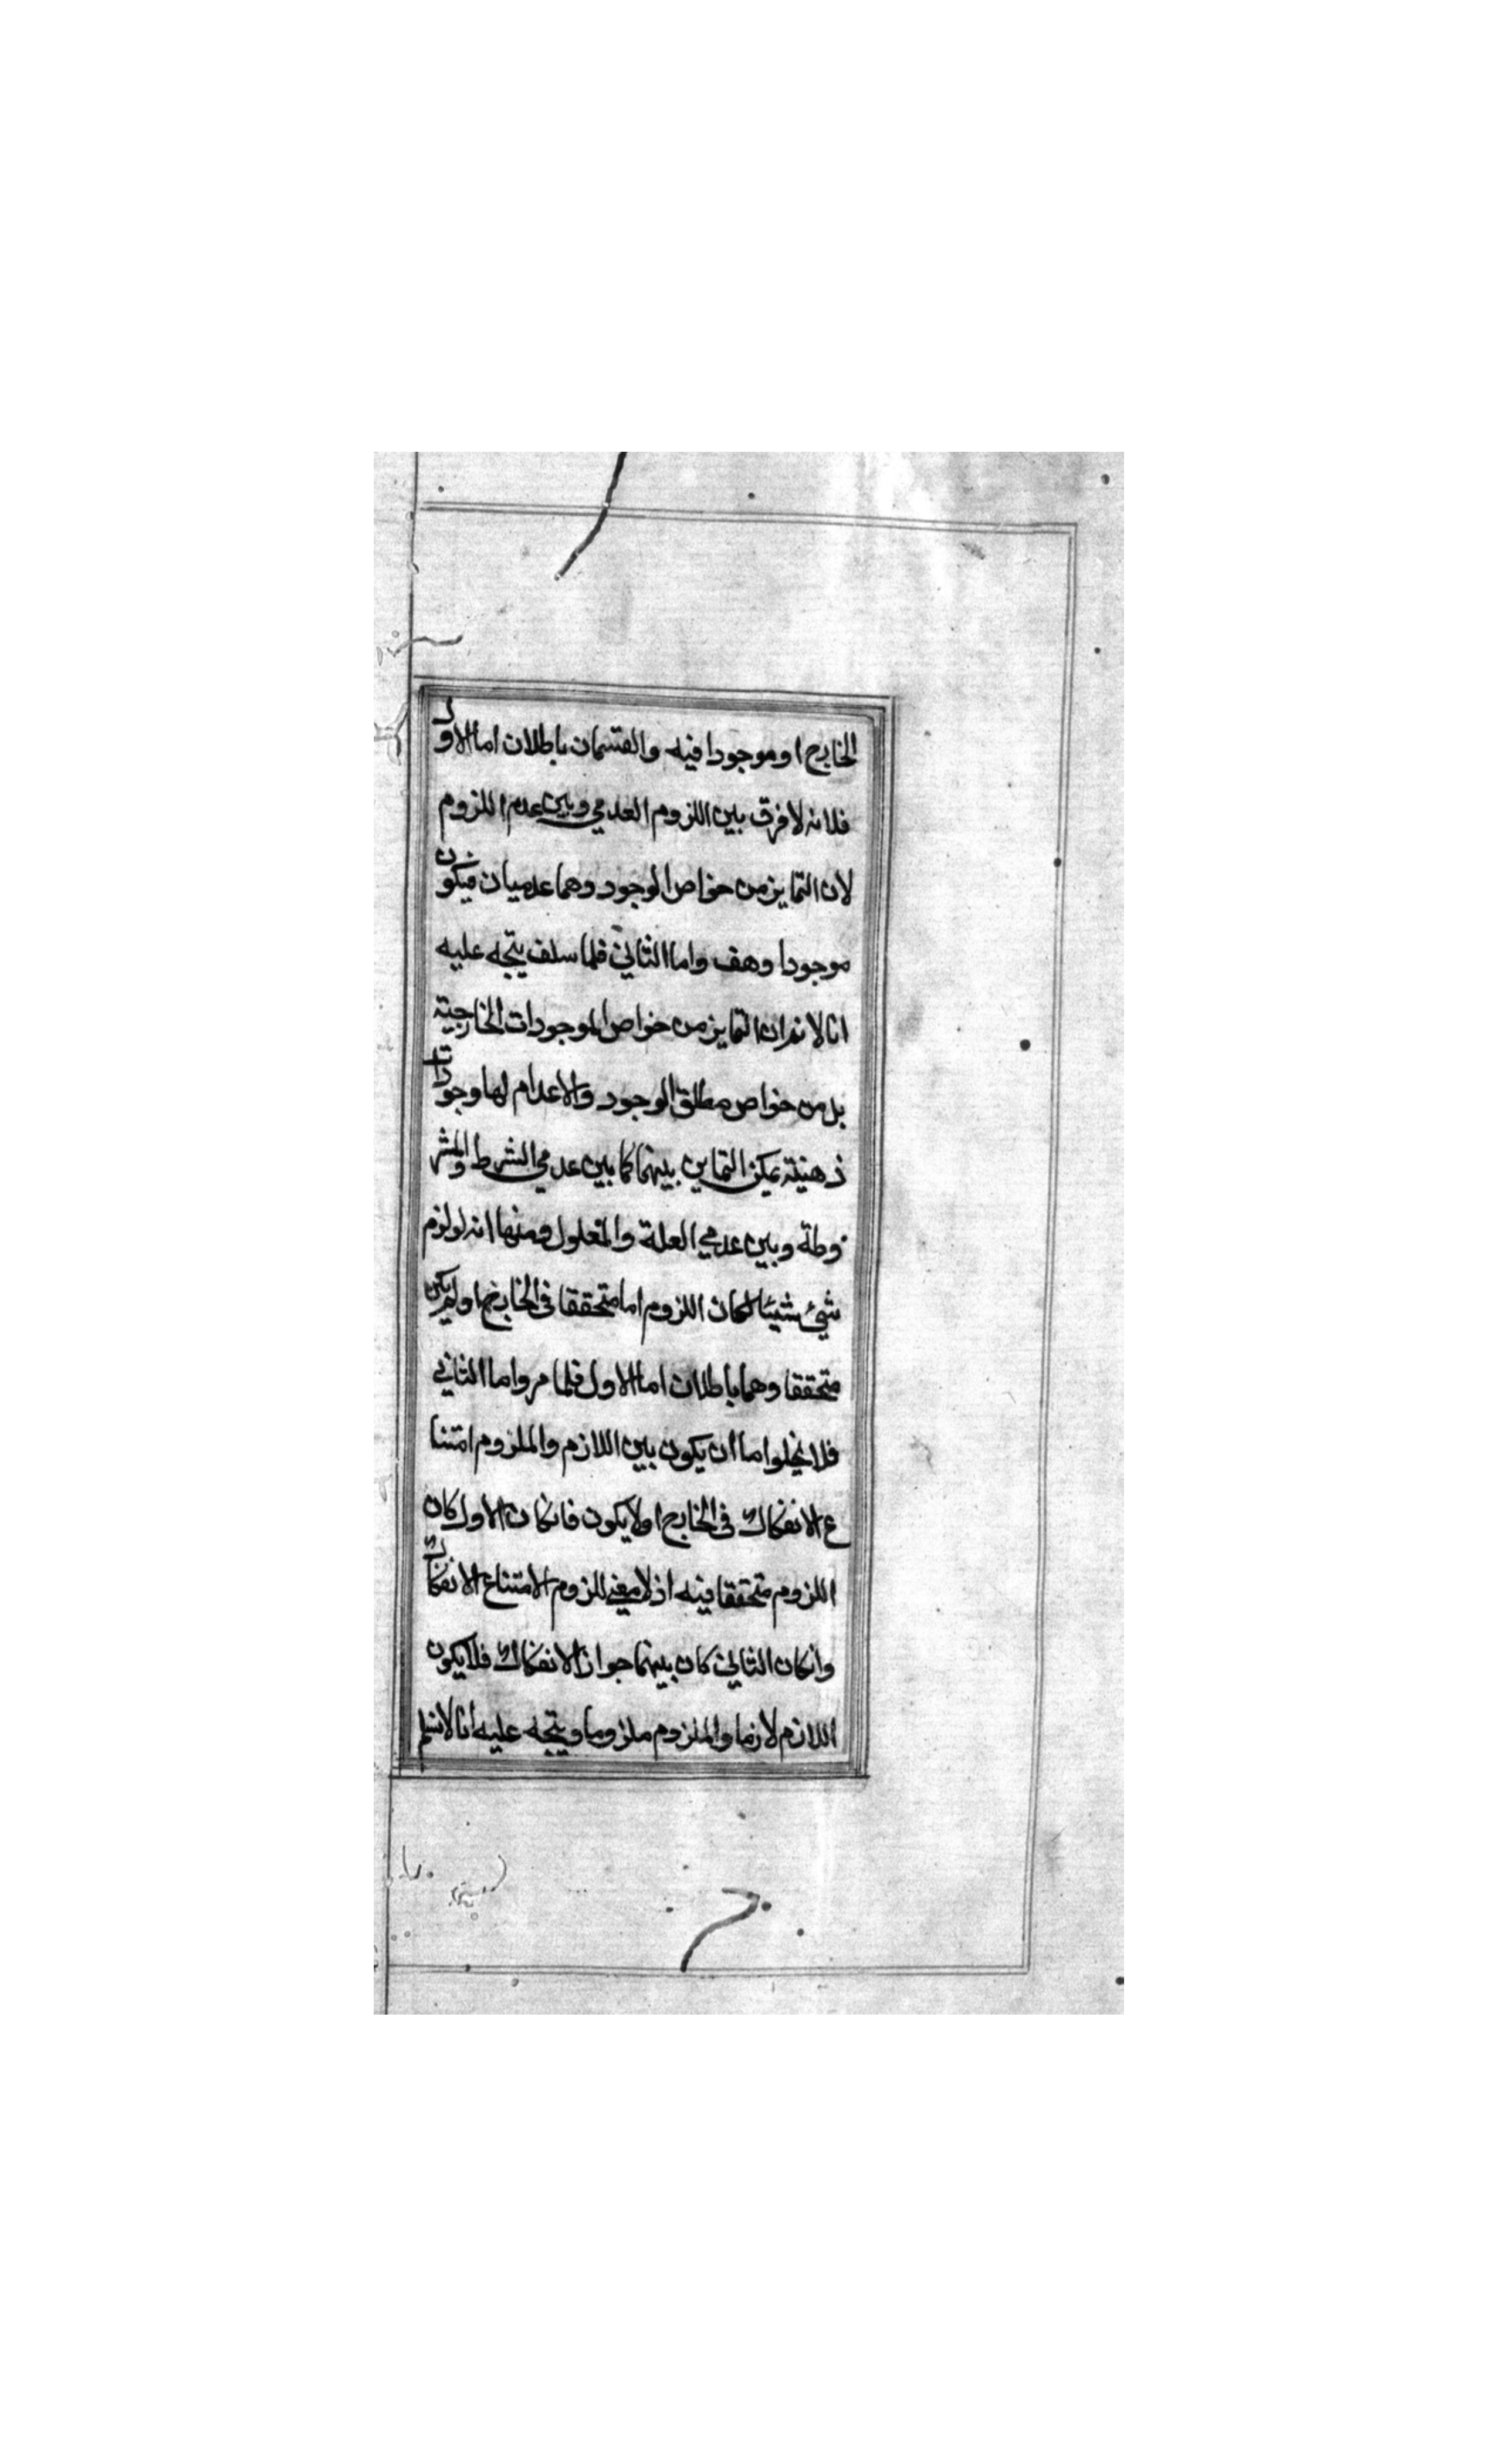 الخارج او موجودا فيه والقسمان باطلان اما الاول
فلانه لا فرق بين اللزوم العدمي وبين عدم اللزوم
لان التمايز من خواص الوجود وهما عدميان فيكون
موجودا وهف واما الثاني فلما سلف يتجه عليه
انا لا نم ان التمايز من خواص الموجودات الخارجية
بل من خواص مطلق الوجود والاعدام لها وجودات
ذهنية يمكن التماين بينهما كما بين عدمي الشرط والمشر
وطة وبين عدمي العلة والمعلول ومنها انه لو لزم
شيئ شيئا لكان اللزوم اما متحققا في الخارج او لم يكن
متحققا وهما باطلان اما الاول فلما مر واما الثاني
فلا يخلوا ما ان يكون بين اللازم والملزوم امتنا
ع الانفكاك في الخارج او لا يكون فانكان الاول كان
اللزوم متحققا فيه اذ لا معني للزوم الا امتناع الانفكاك
وانكان الثاني كان بينهما جواز الانفكاك فلا يكون
اللازم لازما والملزوم ملزوما ويتجه عليه انا لا نسلم